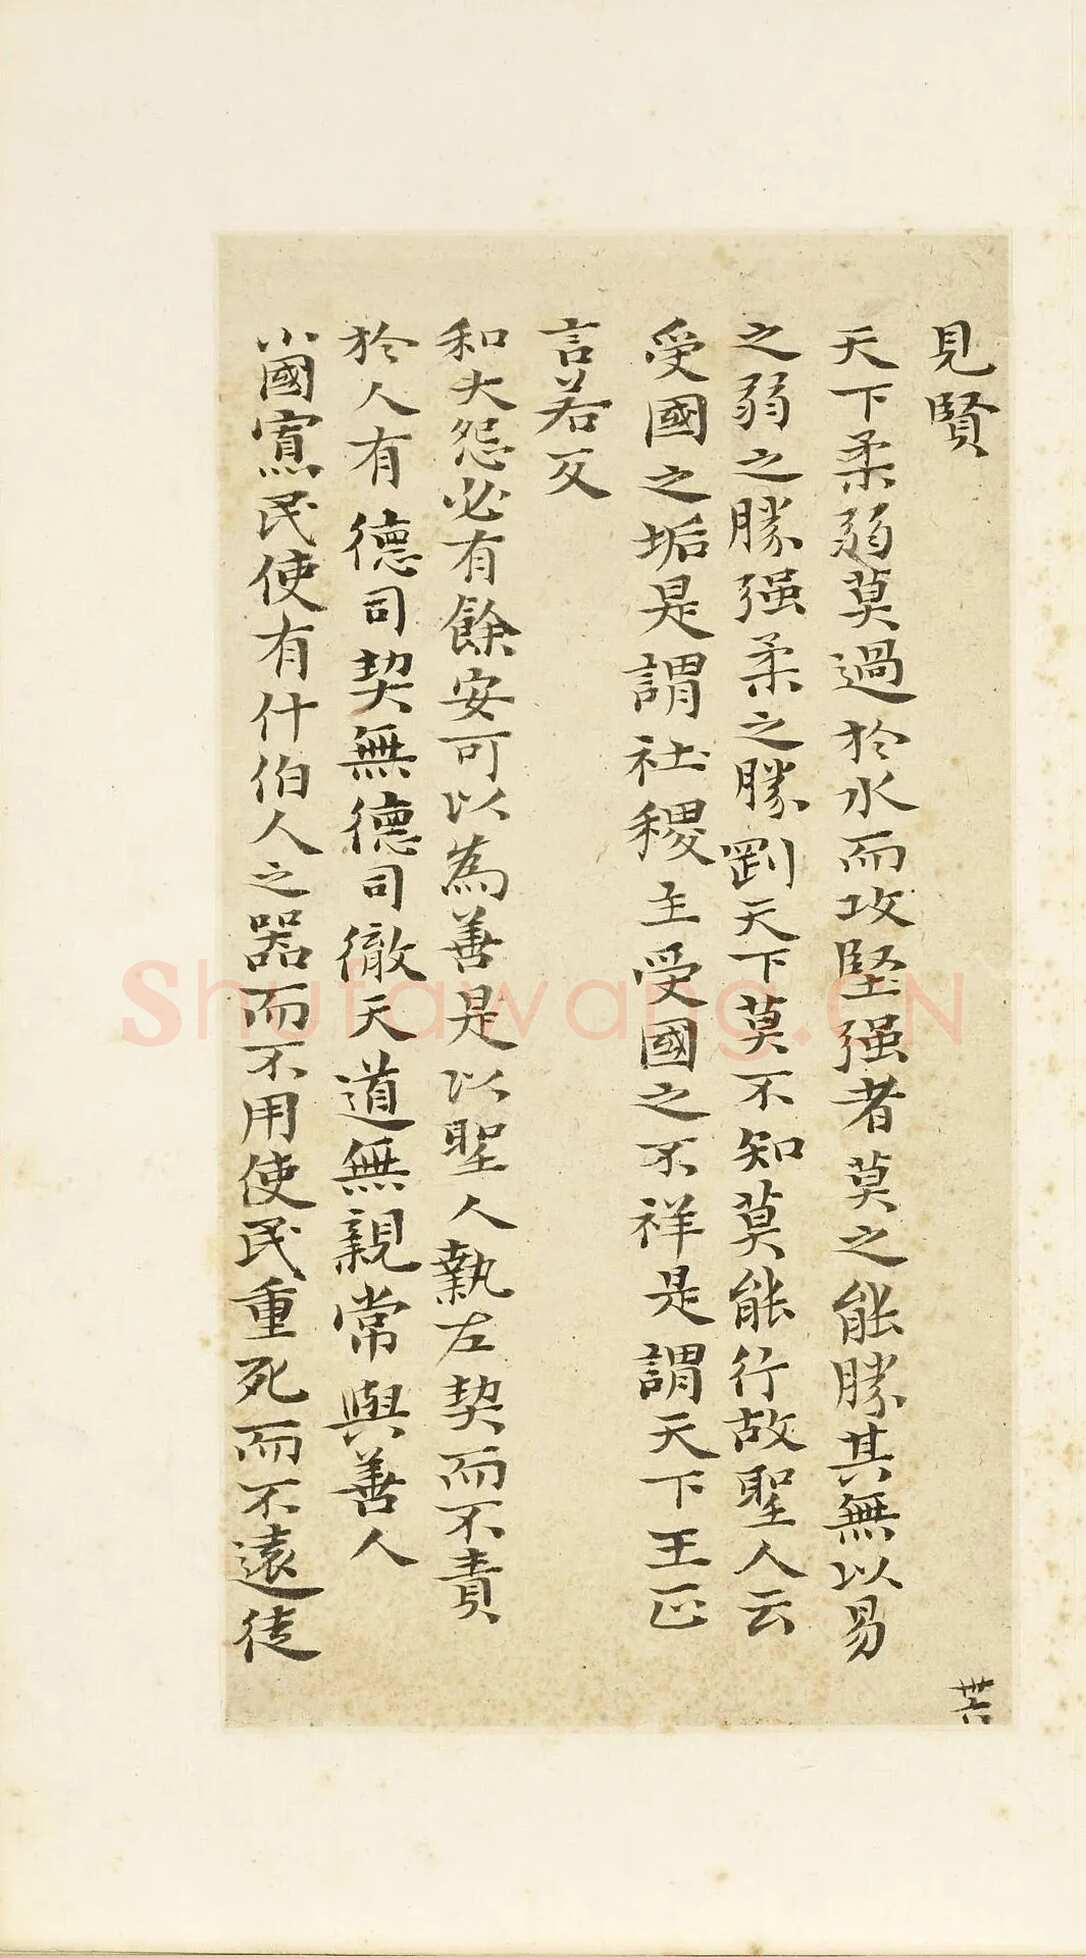 見賢
天下柔弱莫過於水而攻堅强者莫之能勝其無以易
之弱之勝强柔之勝剛天下莫不知莫能行故聖人云
受國之垢是謂社稷主受國之不祥是謂天下王正
言若反
和大怨必有餘怨安可以為善是以聖人執左契而不責
於人有德司契無德司徹天道無親常與善人
小國寡民使有什伯人之器而不用使民重死而不遠徙
Shufawang.CN